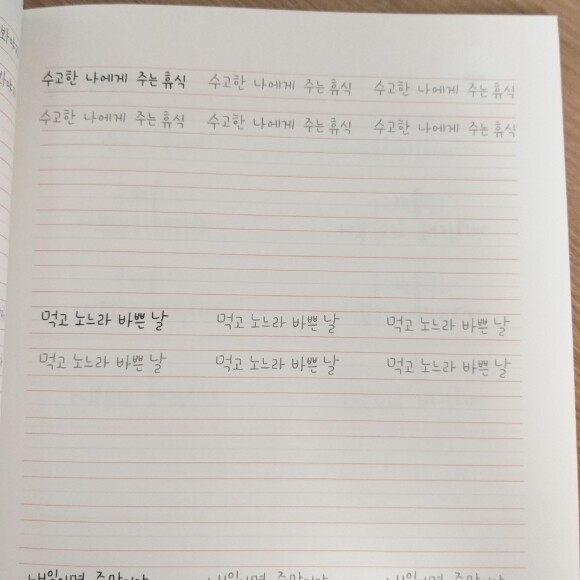 수고한 나에게 주는 휴식 수고한 나에게 주는 휴식 수고한 나에게 주는 휴식
수고한 나에게 주는 휴식 수고한 나에게 주는 휴식 수고한 나에게 주는 휴식
먹고 노느라 바쁜 날 먹고 노느라 바쁜 날 먹고 노느라 바쁜 날
먹고 노느라 바쁜 날 먹고 노느라 바쁜 날 먹고 노느라 바쁜 날